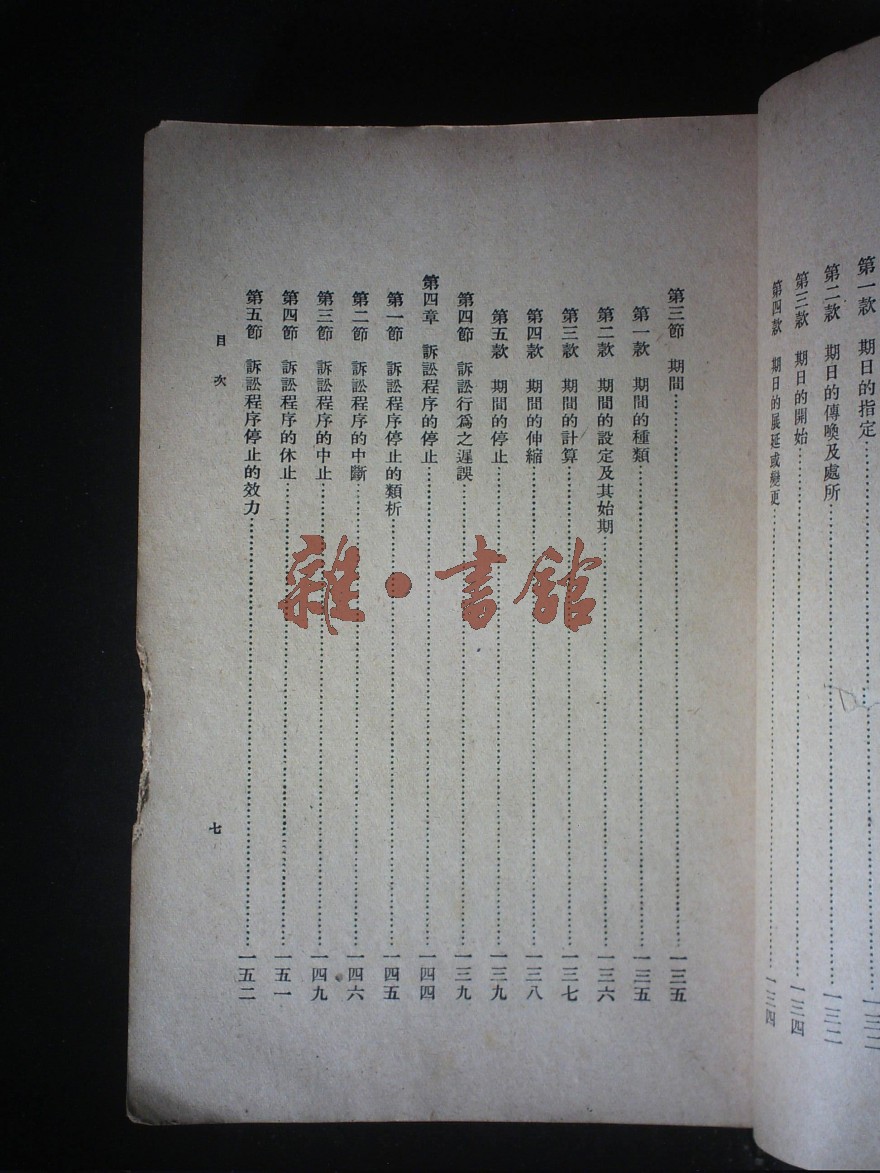 第一款　期日的指定…………一三二
第二款　期日的傳喚及處所…………一三二
第三款　期日的開始…………一三四
第四款　期日的展延或變更…………一三四
第三節　期間…………一三五
第一款　期間的種類…………一三五
第二款　期間的設定及其始期…………一三六
第三款　期間的計算…………一三七
第四款　期間的伸縮…………一三八
第五款　期間的停止…………一三九
第四節　訴訟行爲之遲誤…………一三九
第四章　訴訟程序的停止…………一四四
第一節　訴訟程序停止的類析…………一四五
第二節　訴訟程序的中斷…………一四六
第三節　訴訟程序的中止…………一四九
第四節　訴訟程序的休止…………一五一
第五節　訴訟程序停止的效力…………一五二
目次　七
雜·書館